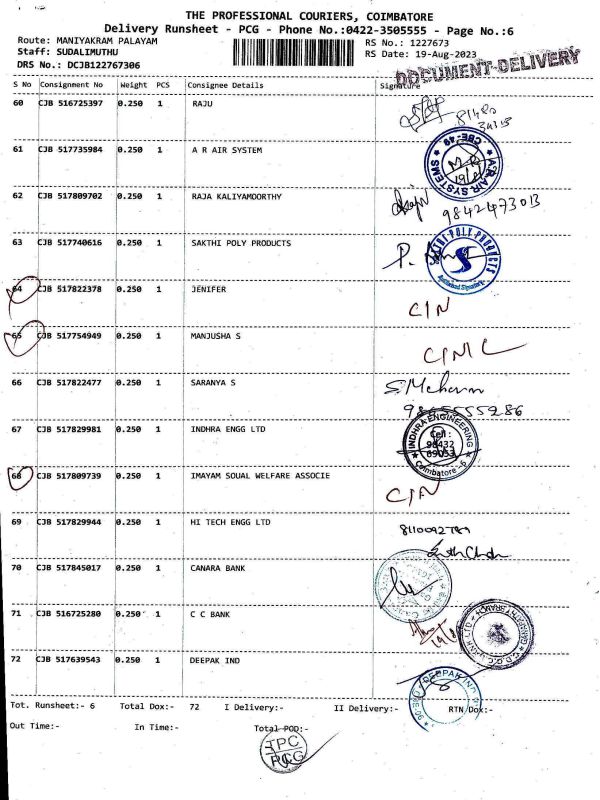 THE PROFESSIONAL COURIERS, COIMBATORE
Delivery Runsheet - PCG - Phone No.:0422-3505555 - Page No.:6
Route: MANIYAKRAM PALAYAM RS No.: 1227673
Staff: SUDALIMUTHU RS Date: 19-Aug-2023
DRS No.: DCJB122767306 DOCUMENT-DELIVERY
S No Consignment No Weight PCS Consignee Details Signature
60 CJB 516725397 0.250 1 RAJU
61 CJB 517735984 0.250 1 A R AIR SYSTEM
A.R AIR SYSTEMS CBE-49
62 CJB 517809702 0.250 1 RAJA KALIYAMOORTHY
9842473013
63 CJB 517740616 0.250 1 SAKTHI POLY PRODUCTS
SAKTHI POLY PRODUCTS S Authorised Signature
64 CJB 517822378 0.250 1 JENIFER
C/N
65 CJB 517754949 0.250 1 MANJUSHA S
66 CJB 517822477 0.250 1 SARANYA S
67 CJB 517829981 0.250 1 INDHRA ENGG LTD
INDHRA ENGINEERING Cell: 98432 Coimbatore - 6
68 CJB 517809739 0.250 1 IMAYAM SOUAL WELFARE ASSOCIE
C/N
69 CJB 517829944 0.250 1 HI TECH ENGG LTD
70 CJB 517845017 0.250 1 CANARA BANK
71 CJB 516725280 0.250 1 C C BANK
72 CJB 517639543 0.250 1 DEEPAK IND
DEEPAK IND
Tot. Runsheet:- 6 Total Dox:- 72 I Delivery:- II Delivery:- RTN Dox:-
Out Time:- In Time:- Total POD:-
TPC
PCG